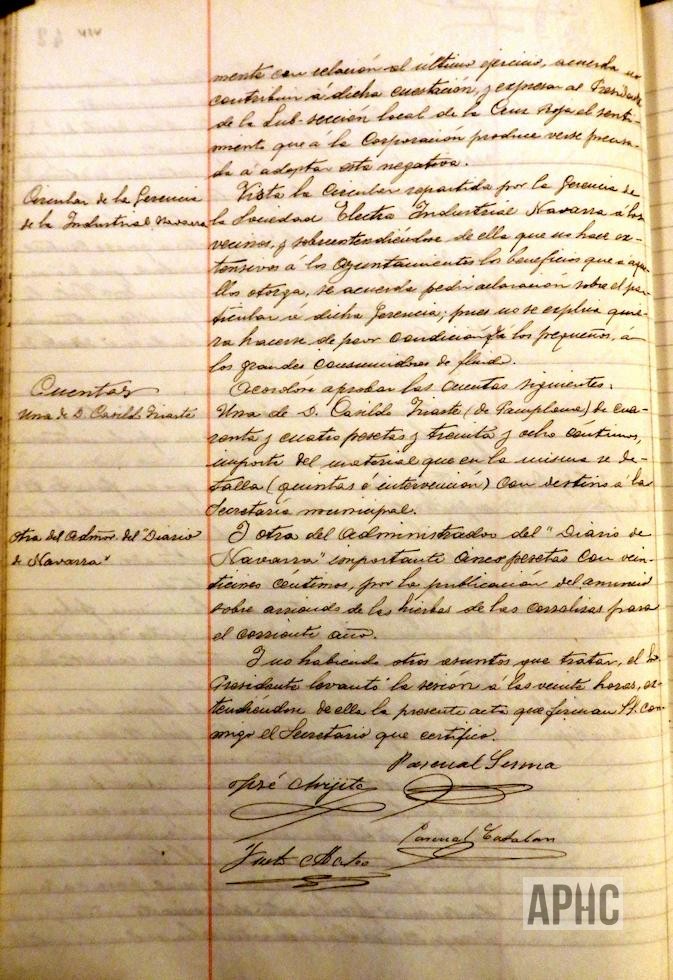 mento con relación al último ejercicio, acuerda no
contribuir á dicha cuestación, y expresar al Presidente
de la Sub-sección local de la Cruz Roja el senti-
miento que á la Corporación produce verse precisa-
da á adoptar esta negativa.
Circular de la Gerencia
de la Industrial Navarra
Vista la Circular repartida por la Gerencia de
la Sociedad Electra Industrial Navarra á los
vecinos, y sobrentendiéndose de ella que no hace ex-
tensivos á los Ayuntamientos los beneficios que á aque-
llos otorga, se acuerda pedir aclaración sobre el par-
ticular á dicha Gerencia; pues no se explica quie-
ra hacerse de peor condición á los pequeños, á
los grandes consumidores de fluido.
Cuentas
Acordose aprobar las cuentas siguientes:
Una de D. Casildo Iriarte
Una de D. Casildo Iriarte (de Pamplona) de cua-
renta y cuatro pesetas y treinta y ocho céntimos,
importe del material que en la misma se de-
talla (quintas é intervención) con destino á la
Secretaría municipal.
Otra del Admor. del "Diario
de Navarra"
Y otra del Administrador del "Diario de
Navarra" importante cinco pesetas con vein-
ticinco céntimos, por la publicación del anuncio
sobre arriendo de las hierbas de las corralizas para
el corriente año.
Y no habiendo otros asuntos que tratar, el Sr.
Presidente levantó la sesión á las veinte horas, ex-
tendiéndose de ella la presente acta que firman SS. con-
migo el Secretario que certifico.
Pascual Serma
José
Pascual Catalan
Justo Mateo
APHC